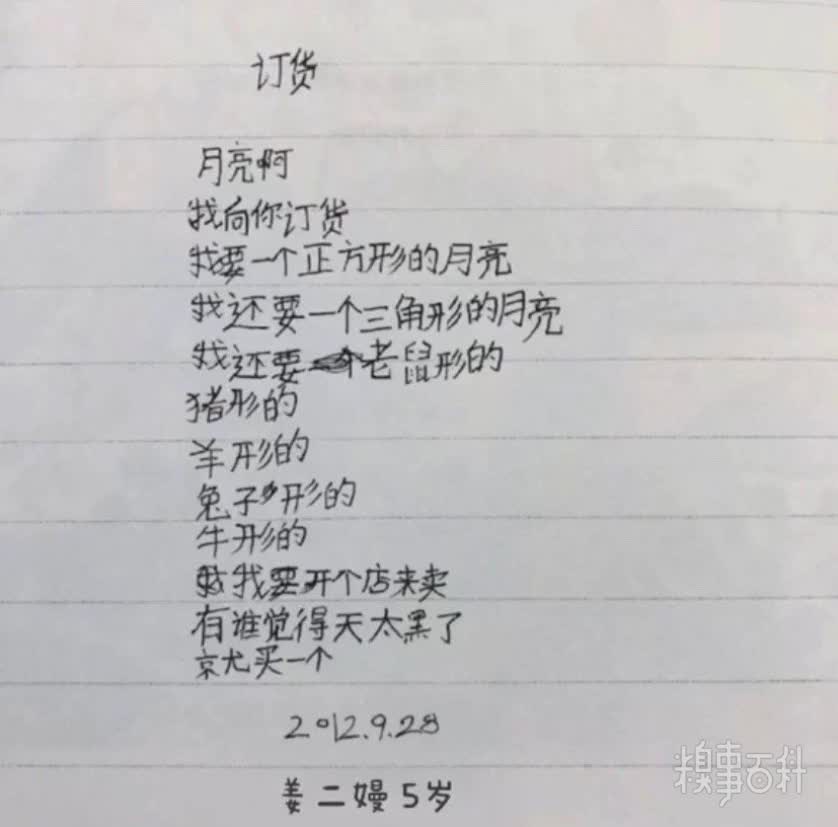 订货
月亮啊
我向你订货
我要一个正方形的月亮
我还要一个三角形的月亮
我还要老鼠形的
猪形的
羊形的
兔子形的
牛形的
我要开个店来卖
有谁觉得天太黑了
就买一个
2012.9.28
姜二嫚5岁
糗事百科